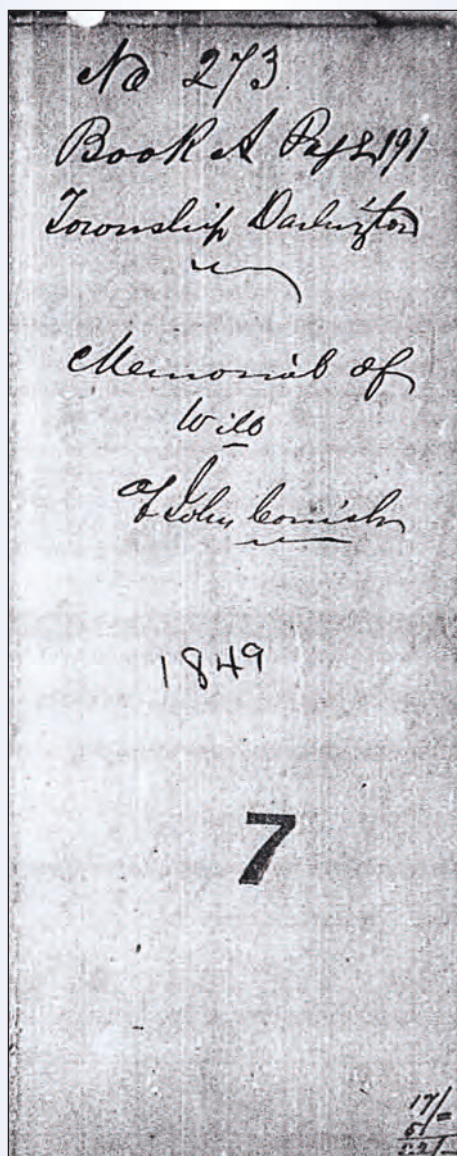 No 273
Book A Page 191
Township Darlington
Memorial of
Will
of John Cornish
1849
7
17/=
5/